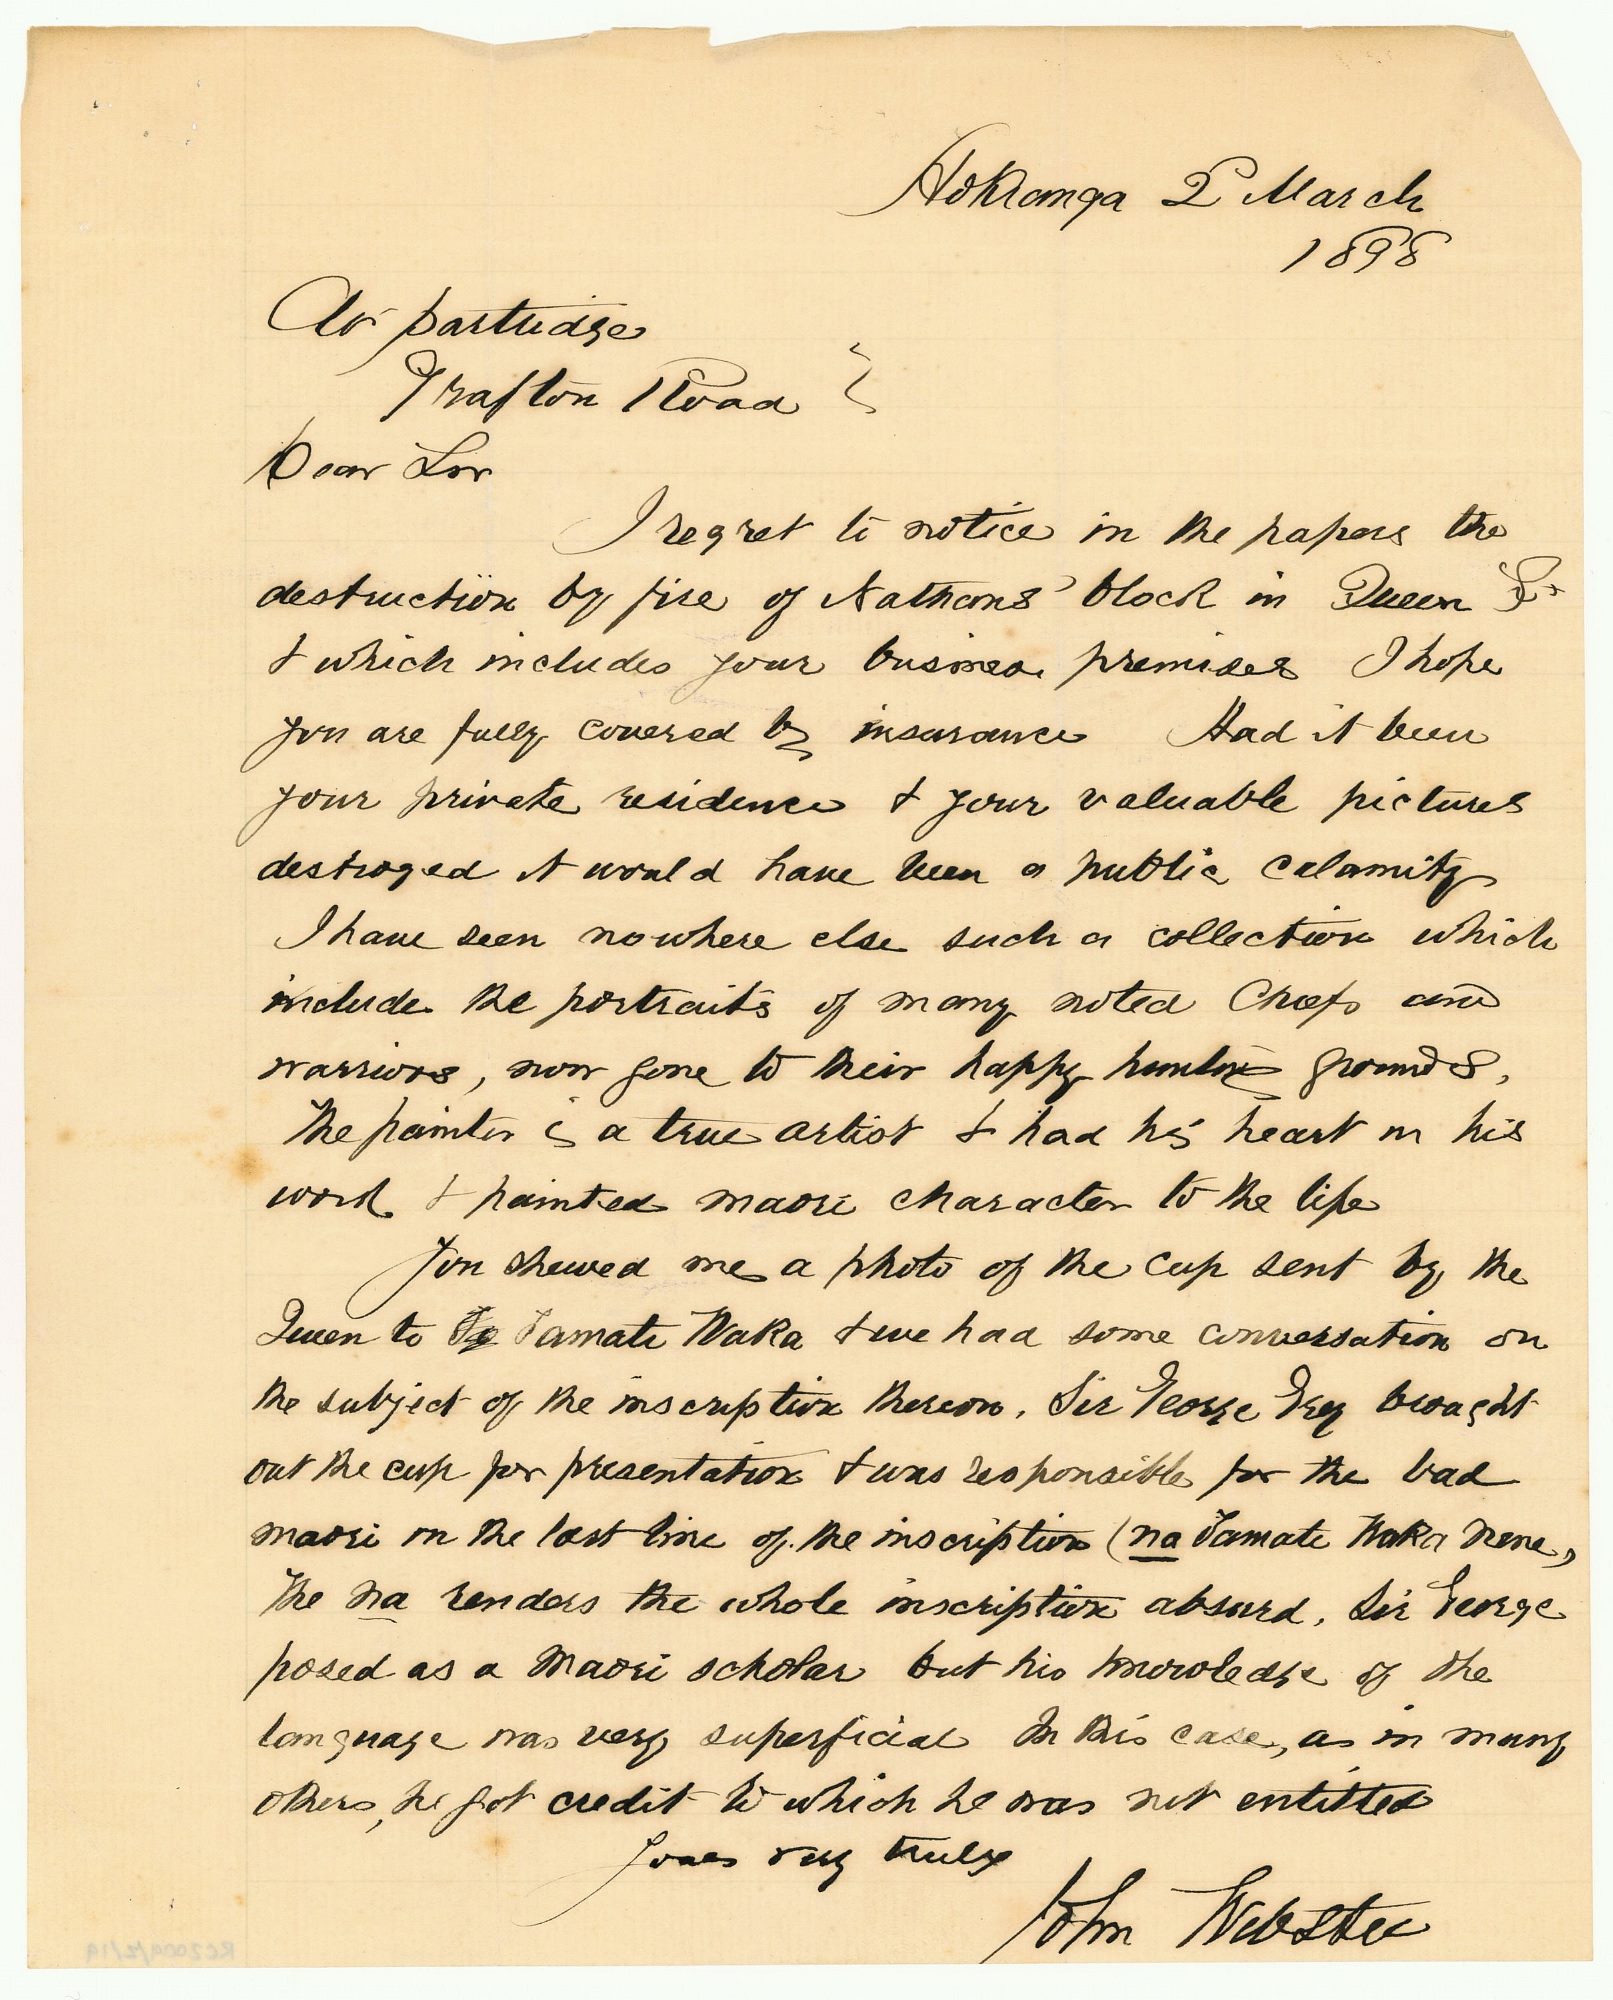 Hokianga 2 March
1898
Mr Partridge
Grafton Road }
Dear Sir
I regret to notice in the papers the
destruction by fire of Nathans' block in Queen St
& which includes your business premises I hope
you are fully covered by insurance Had it been
your private residence & your valuable pictures
destroyed it would have been a public calamity
I have seen nowhere else such a collection which
include the portraits of many noted Chiefs and
warriors, now gone to their happy hunting grounds,
The painter is a true artist & had his heart in his
work & painted maori character to the life
You shewed me a photo of the cup sent by the
Queen to Tamati Waka & we had some conversation on
the subject of the inscription thereon. Sir George Grey brought
out the cup for presentation & was responsible for the bad
maori in the last line of the inscription (na Tamati Waka Nene,
The na renders the whole inscription absurd. Sir George
posed as a Maori scholar but his knowledge of the
language was very superficial In this case, as in many
others, he got credit to which he was not entitled
Yours very truly
John Webster
RC2009/2/19